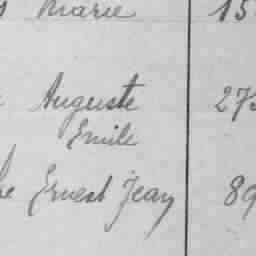 Marie 15
Auguste 273
Emile
Ernest Jean 89